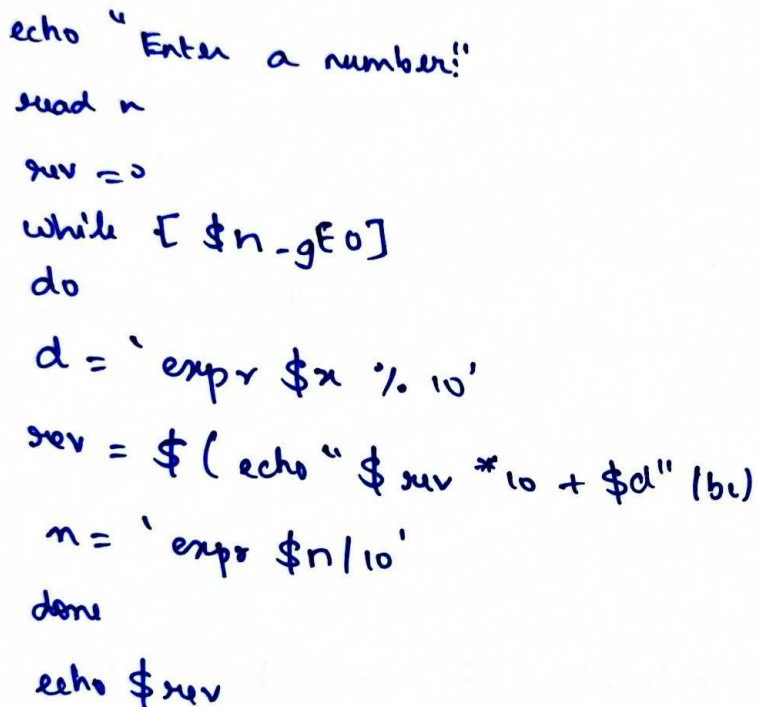 echo "Enter a number:"
read n
rev =0
while [ $n -gt 0]
do
d = `expr $x % 10'
rev = $( echo "$rev *10 + $d" |bc)
n = `expr $n/10'
done
echo $rev